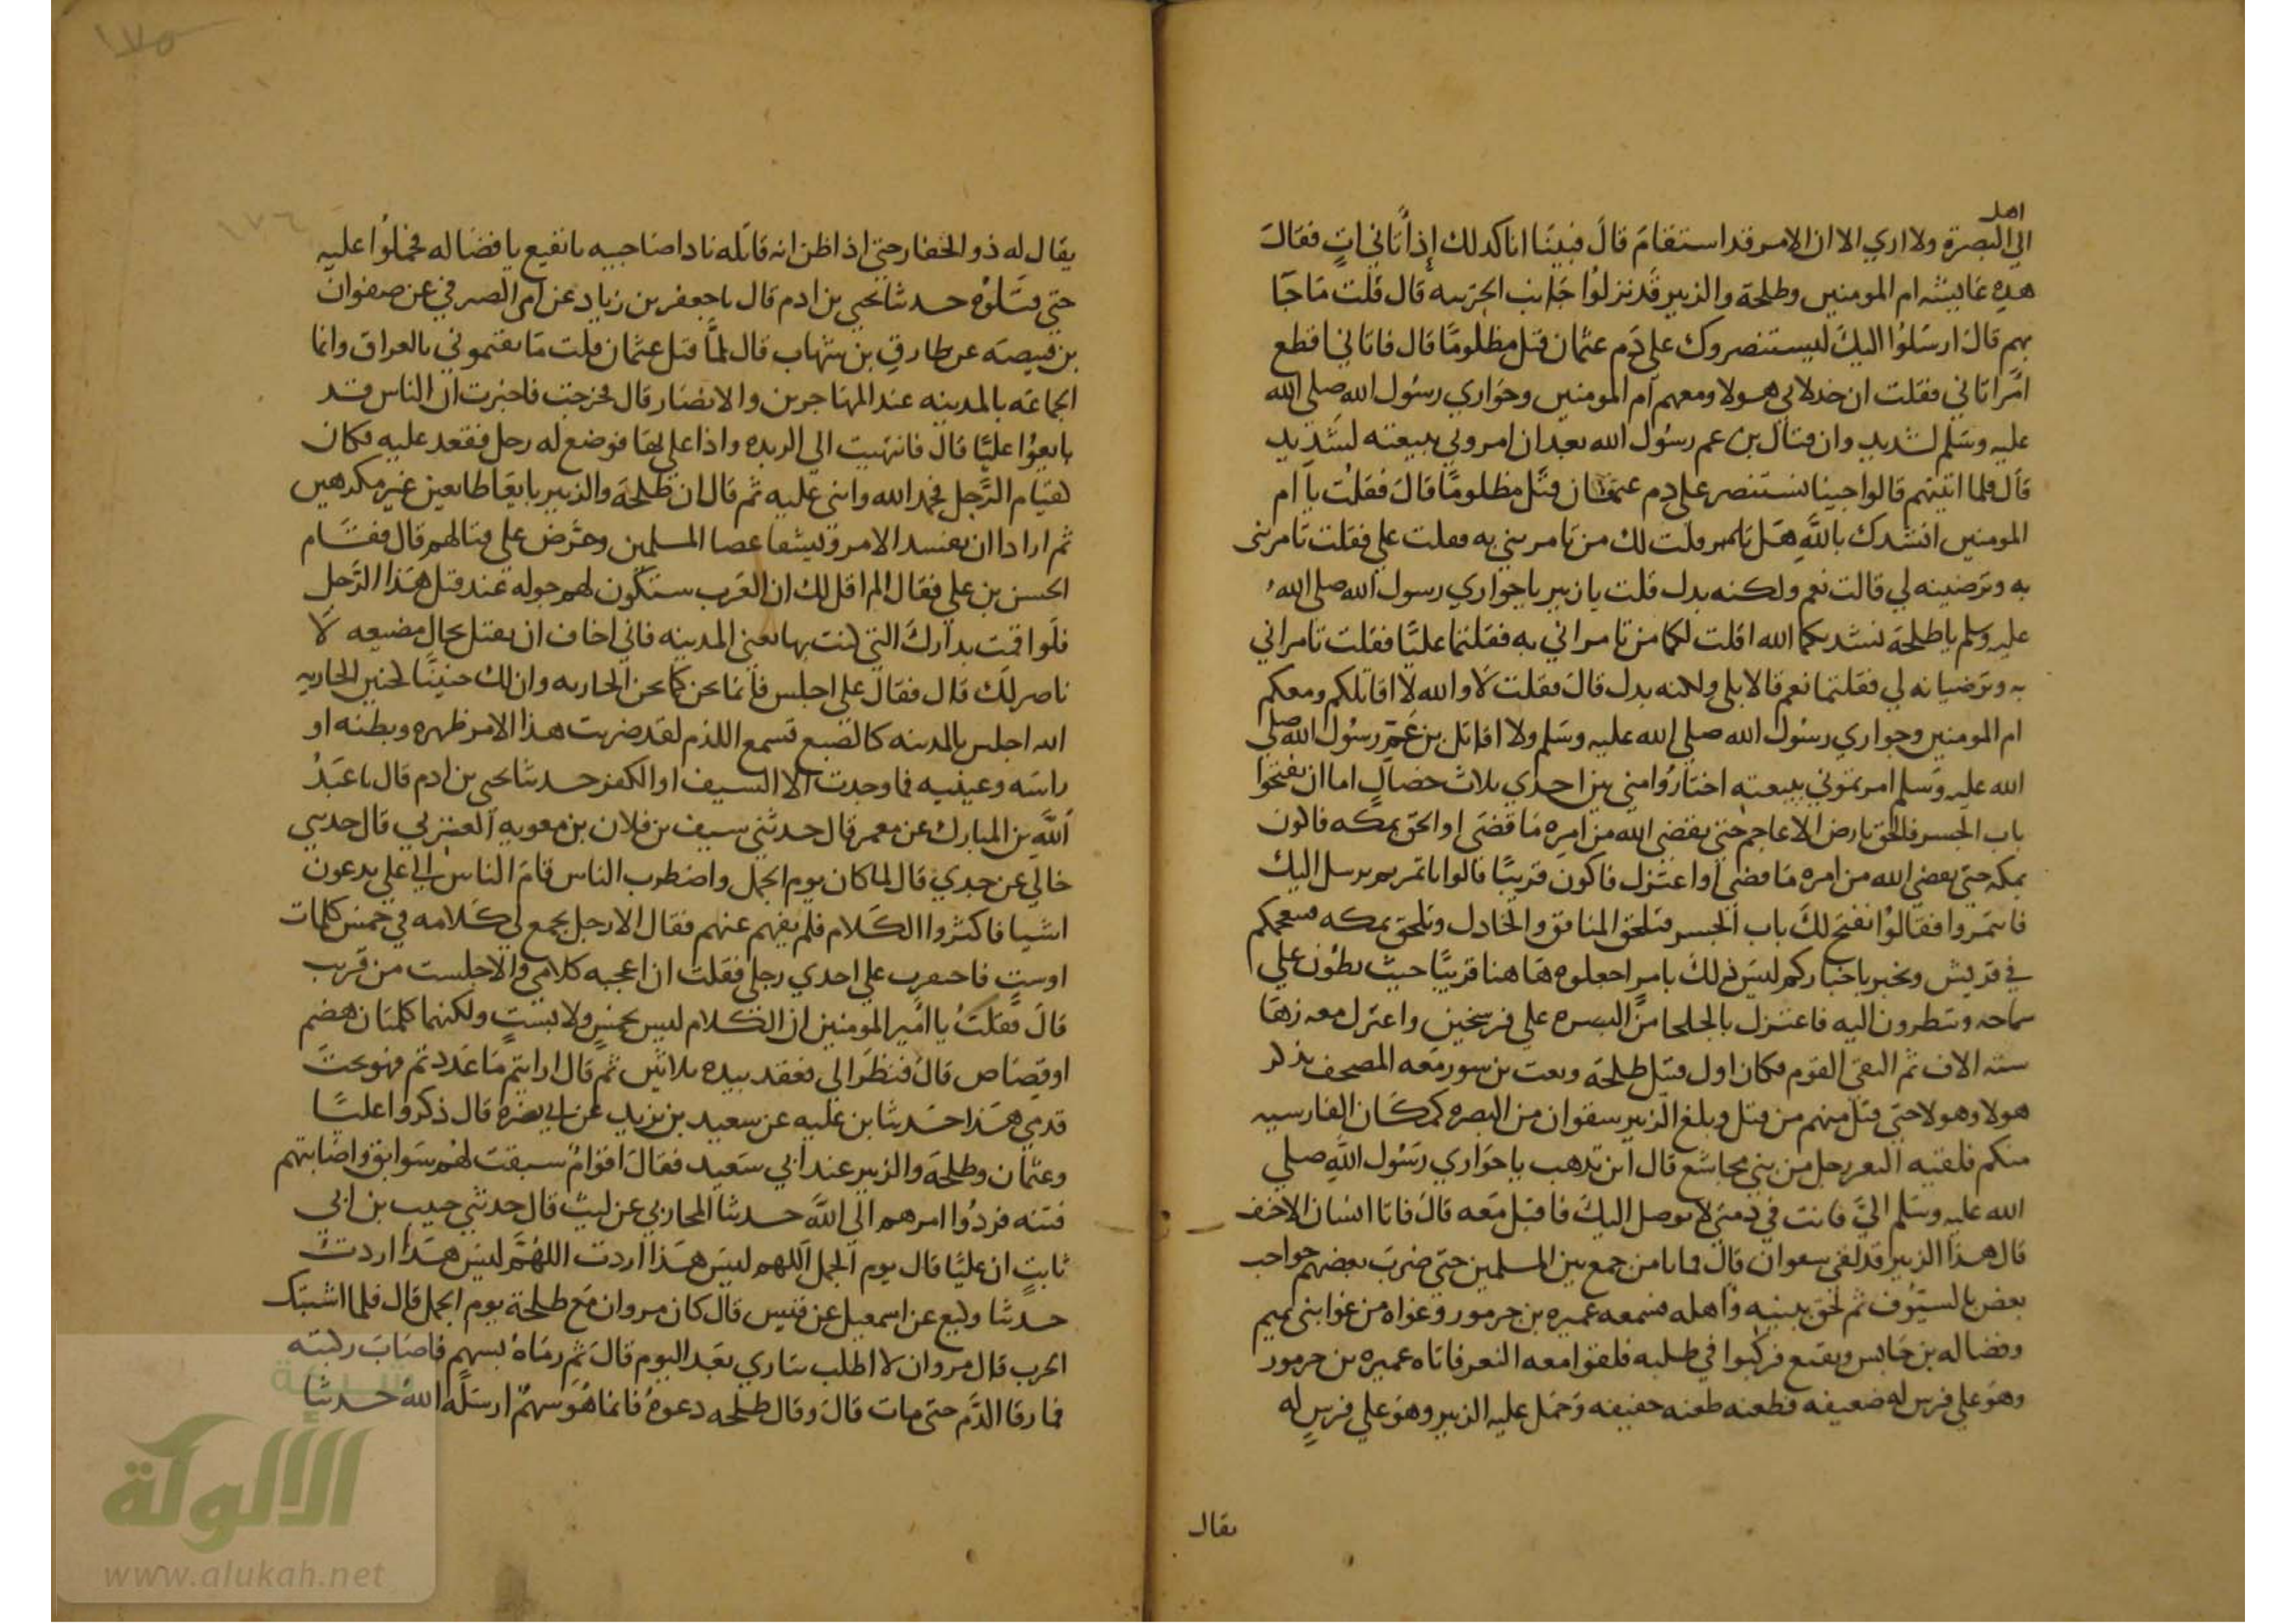 اهل
الي البصرة ولا اري الا ان الامر قد استقام قال فبينا انا كذلك إذ أتاني اتٍ فقال
هذه عايشه ام المومنين وطلحة والزبير قد نزلوا جانب الخريبه قال قلت ما جآ
بهم قال ارسلوا اليك ليستنصروك علي دم عثمان قتل مظلومًا قال فاتاني افظع
امر اتاني فقلت ان خذلاني هولا ومعهم ام المومنين وحواري رسول الله صلي الله
عليه وسلم لشديد وان قتال بن عم رسول الله بعد ان امروني ببيعته لشديد
قال فلما اتيتهم قالوا جينا نستنصر علي دم عثمان قتل مظلومًا قال فقلت يا ام
المومنين انشدك بالله هل قلت لك من تامرينني به فقلت علي فقلت تامرينني
به وترضينه لي قالت نعم ولكنه بدل قلت يا زبير يا حواري رسول الله صلي الله
عليه وسلم يا طلحة نشدتكما الله اقلت لكما من تامراني به فقلتما عليًا فقلت تامراني
به وترضيانه لي فقلتما نعم قالا بلي ولكنه بدل قال فقلت لا والله لا اقاتلكم ومعكم
ام المومنين وحواري رسول الله صلي الله عليه وسلم ولا اقاتل بن عم رسول الله صلي
الله عليه وسلم امرتموني ببيعته اختاروا مني بين احدي ثلاث خصال اما ان تفتحوا
باب الجسر فالحق بارض الاعاجم حتي يقضي الله من امره ما قضي او الحق بمكه فاكون
بمكه حتي يقضي الله من امره ما قضي او اعتزل فاكون قريبًا قالوا ناتمر ثم نرسل اليك
فاتمروا فقالوا نفتح لك باب الجسر فتلحق المنافق والخاذل وتلحق بمكه
في قريش وتخبر باخباركم ليس ذلك بامر اجعلوه ها هنا قريبًا حيث تطؤن علي
سماخه وتنظرون اليه فاعتزل بالجلحا من البصره علي فرسخين واعتزل معه زها
سته الاف ثم التقي القوم فكان اول قتيل طلحة وكعب بن سور معه المصحف يذكر
هولا وهولا حتي قتل منهم من قتل وبلغ الزبير سفوان من البصره كمكان القادسيه
منكم فلقيه النعر رجل من بني مجاشع قال اين تذهب يا حواري رسول الله صلي
الله عليه وسلم اليَّ فانت في ذمتي لا يوصل اليك فاقبل معه قال فاتا انسان الاحنف
قال هذا الزبير قد لقي سفوان قال فما يامن جمع بين المسلمين حتي ضرب بعضهم حواجب
بعض بالسيوف ثم لحق ببيته واهله فسمعه عميره بن جرموز وغواه من غواه بني تميم
وفضاله بن حابس ونفيع فركبوا في طلبه فلقوا معه النعر فاتاه عميره بن جرموز
وهو علي فرس له ضعيفه فطعنه طعنه خفيفه وحمل عليه الزبير وهو علي فرس له
يقال
١٧٥
١٧٦
يقال له ذو الخمار حتي اذا ظن انه قاتله نادا صاحبيه يا نفيع يا فضاله فحملوا عليه
حتي قتلوه حدثنا يحيي بن ادم قال نا جعفر بن زياد عن امي الصيرفي عن صفوان
بن قبيصه عن طارق بن شهاب قال لمَّا قتل عثمان قلت ما يقيموني بالعراق وانما
الجماعه بالمدينه عند المهاجرين والانصار قال فخرجت فاخبرت ان الناس قد
بايعوا عليًا قال فانتهيت الي الربذه واذا علي بها فوضع له رحل فقعد عليه فكان
كقيام الرجل فحمد الله واثني عليه ثم قال ان طلحة والزبير بايعا طايعين غير مكرهين
ثم ارادا ان يفسدا الامر ويشقا عصا المسلمين وحرض علي قتالهم قال فقام
الحسن بن علي فقال الم اقل لك ان العرب ستكون لهم جوله عند قتل هذا الرجل
فلو اقمت بدارك التي كنت بها يعني المدينه فاني اخاف ان تقتل بحال مضيعه لا
ناصر لك قال فقال علي اجلس فانما تحن كما تحن الجاريه وان لك حنينًا كحنين الجاريه
الله اجلس بالمدينه كالضبع تسمع اللدم لقد ضربت هذا الامر ظهره وبطنه او
راسه وعينيه فما وجدت الا السيف او الكفر حدثنا يحيي بن ادم قال نا عبدُ
الله بن المبارك عن معمر قال حدثني سيف بن فلان بن معويه العنزي قال حدثني
خالي عن جدي قال لما كان يوم الجمل واضطرب الناس قام الناس الي علي يدعون
اشيا فاكثروا الكلام فلم يفهم عنهم فقال الا رجل يجمع لي كلامه في خمس كلمات
اوستٍ فاحتفزت علي احدي رجلي فقلت ان اعجبه كلامي والا جلست من قريب
قال فقلت يا امير المومنين ان الكلام ليس بخمس ولا بستٍ ولكنهما كلمتان هضم
او قصاص قال فنظر الي فعقد بيده ثلاثين ثم قال ارايتم ما عددتم فهو تحت
قدمي هذا حدثنا بن عليه عن سعيد بن يزيد عن ابي نضره قال ذكروا عليًا
وعثمان وطلحة والزبير عند ابي سعيد فقال اقوامٌ سبقت لهم سوابق واصابتهم
فتنه فردوا امرهم الي الله حدثنا المحاربي عن ليث قال حدثني حبيب بن ابي
ثابتٍ ان عليًا قال يوم الجمل اللهم ليس هذا اردت اللهُمَّ ليس هذا اردت
حدثنا وكيع عن اسمعيل عن قيس قال كان مروان مع طلحة يوم الجمل قال فلما اشتبك
الحرب قال مروان لا اطلب بثاري بعد اليوم قال ثم رماه بسهم فاصاب ركبته
فما رقا الدَّم حتي مات قال وقال طلحه دعوهُ فانما هُوَ سهمٌ ارسله الله حدثنا
الألوكة
www.alukah.net